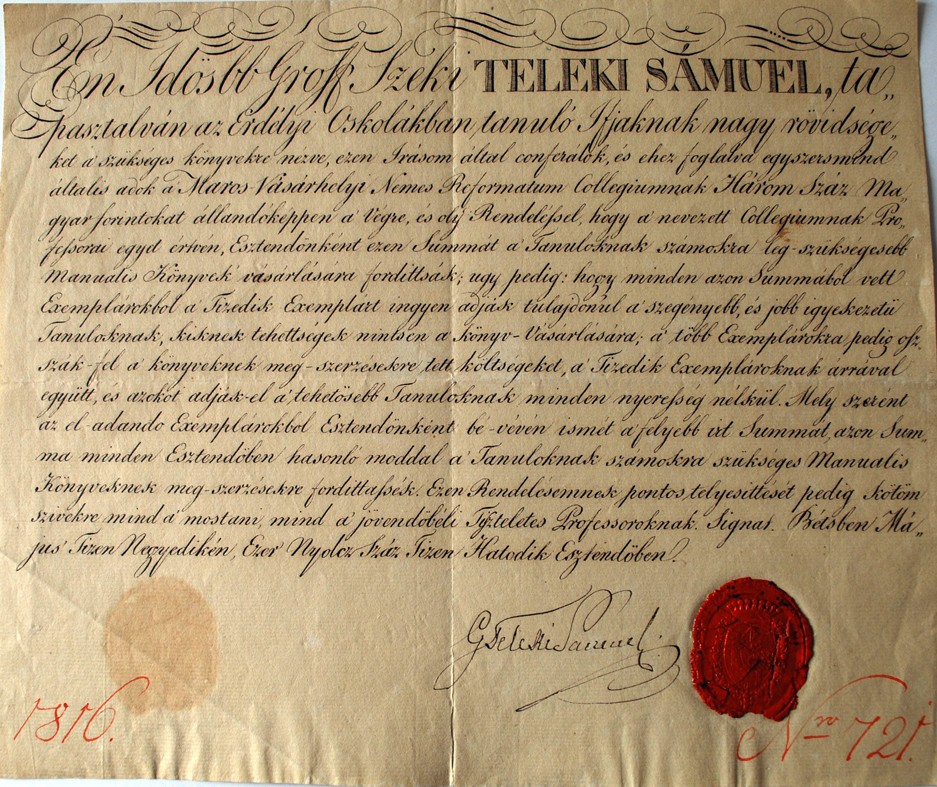 Én Idősbb Groff Szeki TELEKI SÁMUEL, ta„
pasztalván az Erdélyi Oskolákban, tanuló Ifjaknak nagy rövidsége„
ket a' szükséges könyvekre nezve, ezen Irásom által conferálok, és ehez foglalva egyszersmind
általis adok a' Maros-Vásárhelyi Nemes Reformatum Collegiumnak Három Száz Ma„
gyar forintokat állandóképpen a' Végre, és oly Rendeléssel, hogy a' nevezett Collegiumnak Pro„
fessorai egyűt ertvén, Esztendőnként ezen Summát a' Tanuloknak számokra leg-szükségesebb
Manualis Könyvek vásarlására fordittsák; ugy pedig: hogy minden azon Summából vett
Exemplárokbol a' Tizedik Exemplárt ingyen adják tulajdonúl a' szegényebb, és jobb igyekezetü
Tanuloknak, kiknek tehettségek nintsen a' könyv-Vásarlására; a' több Exemplárokra pedig osz„
szák-fel a' könyveknek meg-szerzésekre tett költségeket, a' Tizedik Exemplároknak árrával
együtt, és azokot adják-el a' tehetösebb Tanuloknak minden nyeresség nélkül. Mely szerent
az el-adando Exemplárokbol Esztendőnként bé-vévén ismét a' felyebb irt Summát, azon Sum„
ma minden Esztendőben hasonló moddal a' Tanuloknak számokra szükséges Manualis
Könyveknek meg-szerzésekre fordittassék. Ezen Rendelésemnek pontos telyesittését pedig kötöm
szivekre mind a' mostani, mind a' jövendőbéli Tiszteletes Professoroknak. Signat. Bétsben Má„
jus' Tizen Negyedikén, Ezer Nyolcz Száz Tizen Hatodik Esztendőben.
G Teleki Samuel
1816.
Nro 721.